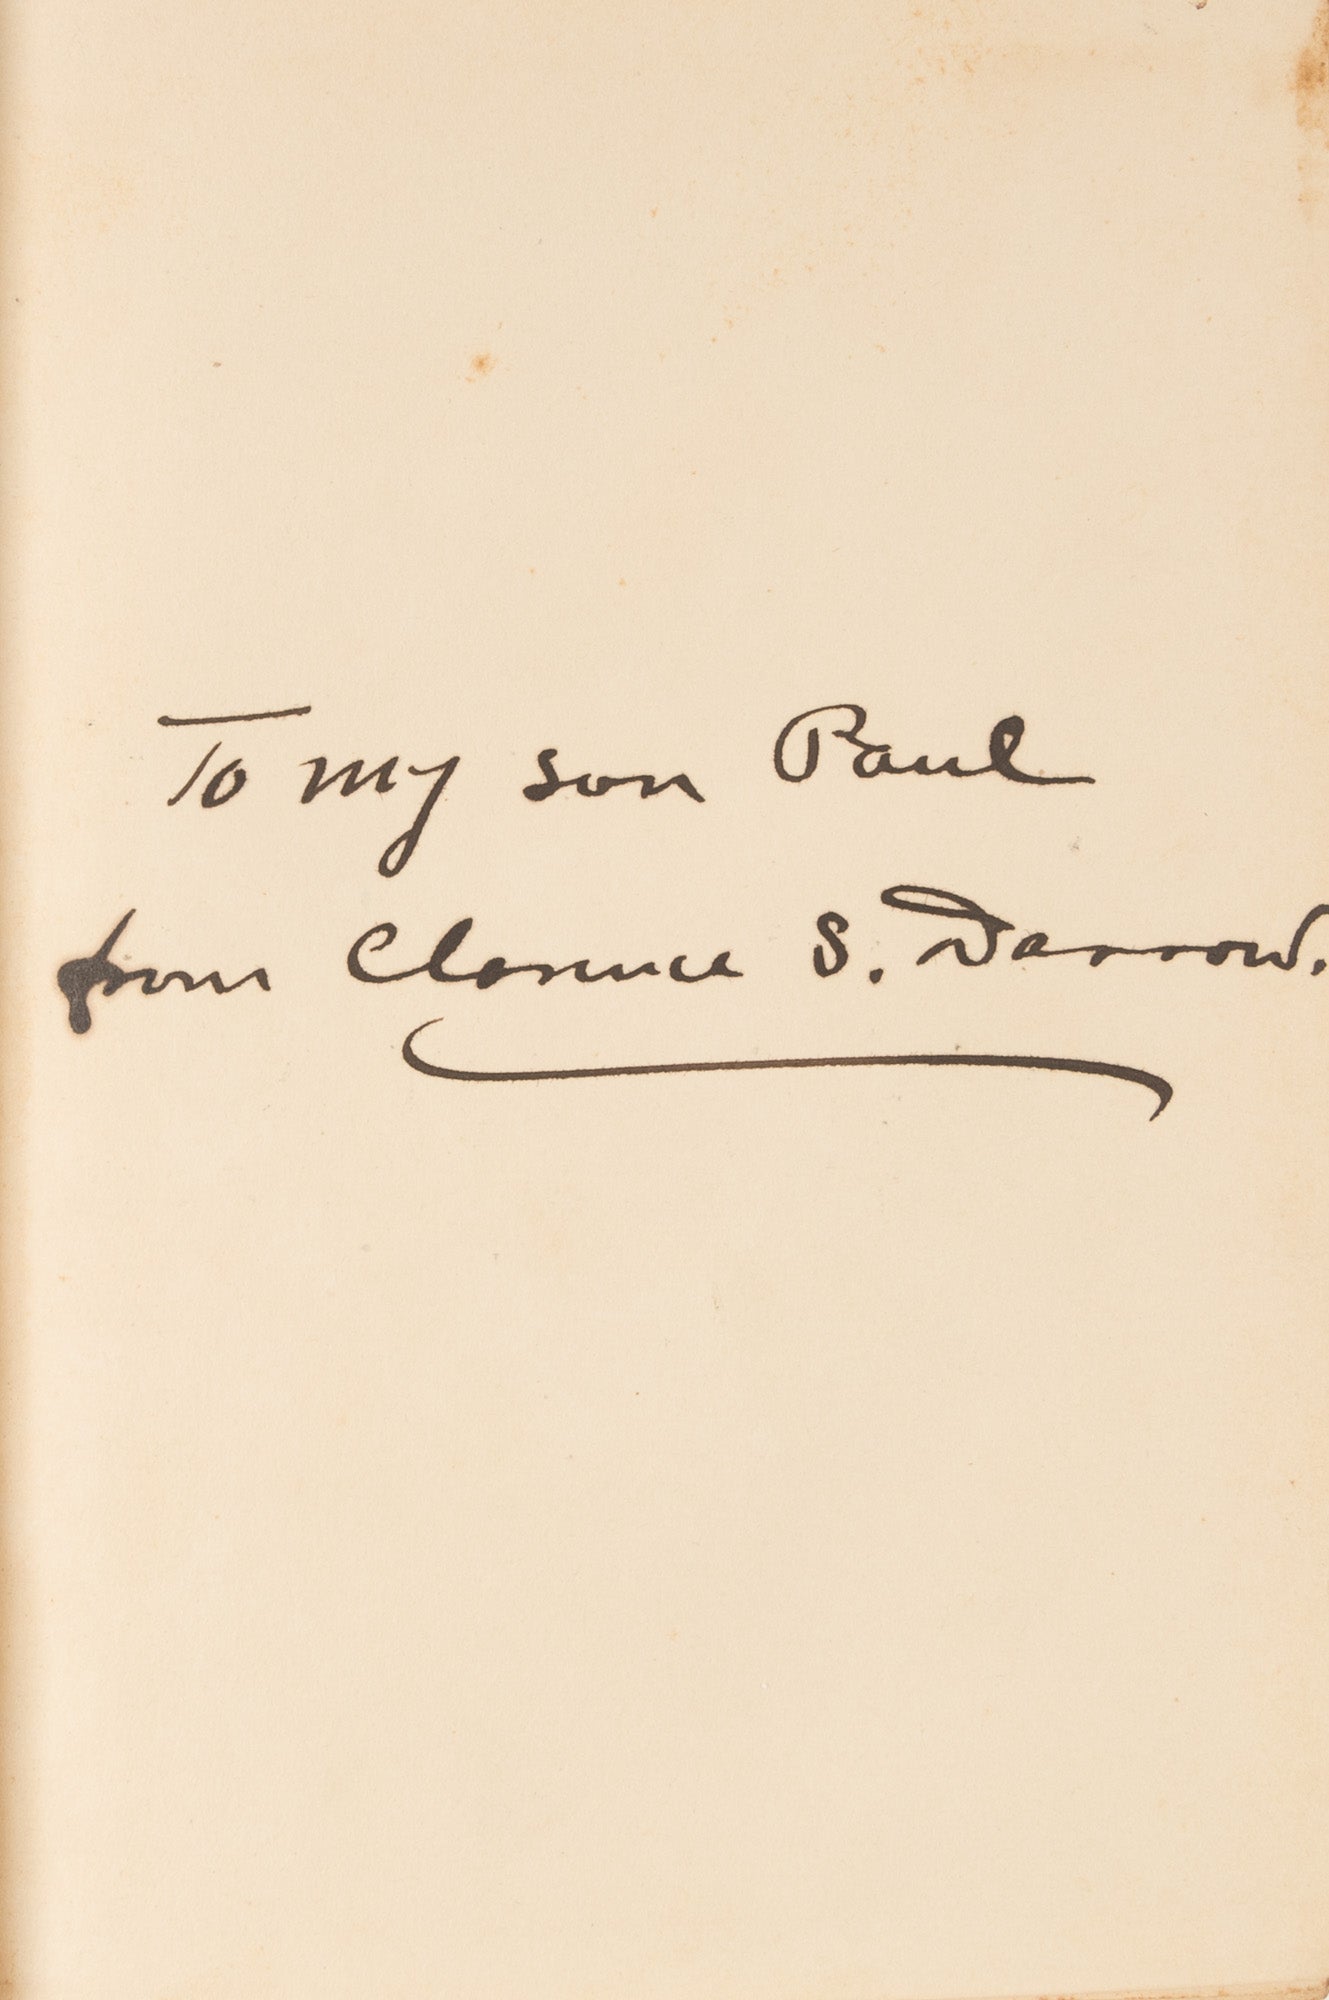 To my son Paul
from Clarence S. Darrow.